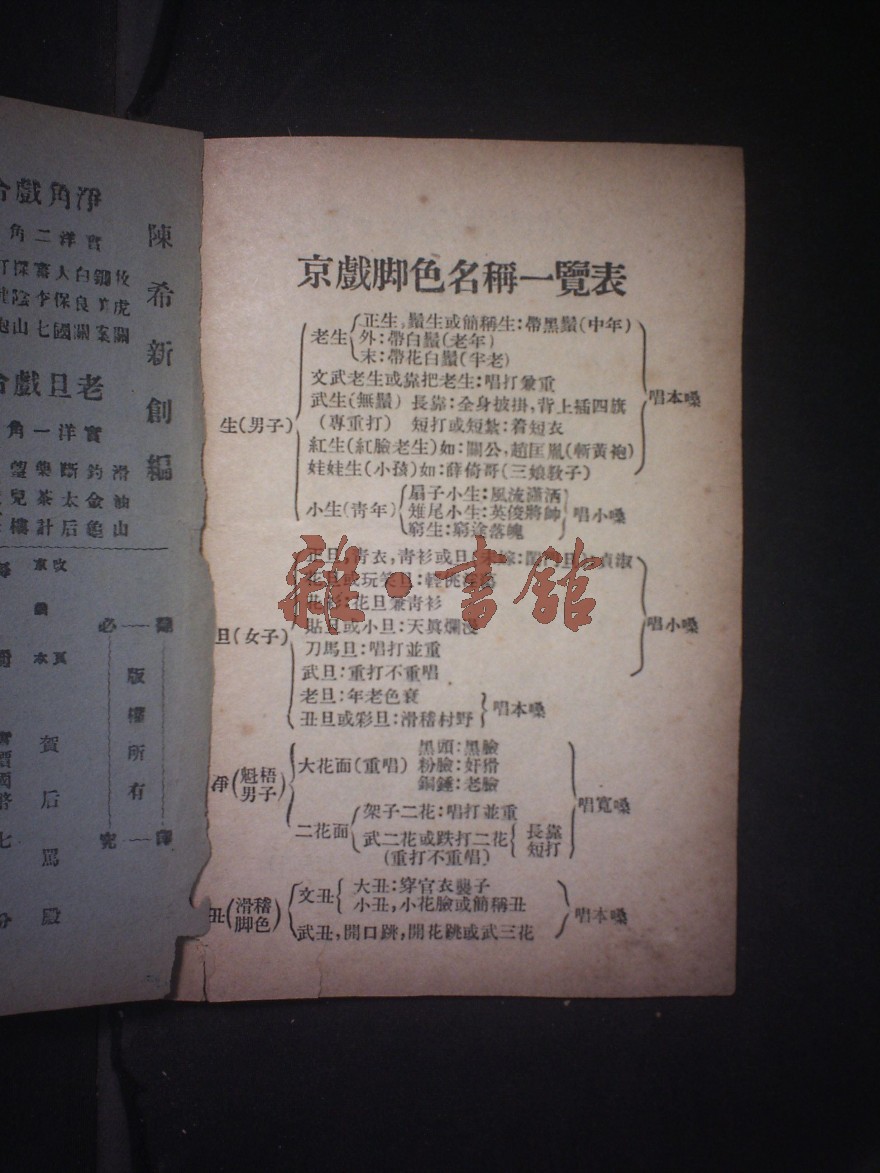 京戲脚色名稱一覽表
生(男子)
老生
正生,鬚生或簡稱生:帶黑鬚(中年)
外:帶白鬚(老年)
末:帶花白鬚(半老)
文武老生或靠把老生:唱打兼重
武生(無鬚) 長靠:全身披掛,背上插四旗
(專重打) 短打或短紮:着短衣
紅生(紅臉老生)如:關公,趙匡胤(斬黃袍)
娃娃生(小孩)如:薛倚哥(三娘敎子)
唱本嗓
小生(靑年)
扇子小生:風流瀟洒
雉尾小生:英俊將帥
窮生:窮途落魄
唱小嗓
旦(女子)
正旦,靑衣,靑衫或旦
貞淑
花旦或玩笑旦:輕挑
花衫:花旦兼靑衫
貼旦或小旦:天眞爛漫
刀馬旦:唱打並重
武旦:重打不重唱
唱小嗓
老旦:年老色衰
丑旦或彩旦:滑稽村野
唱本嗓
淨(魁梧男子)
大花面(重唱)
黑頭:黑臉
粉臉:奸猾
銅錘:老臉
二花面
架子二花:唱打並重
武二花或跌打二花
(重打不重唱)
長靠
短打
唱寬嗓
丑(滑稽脚色)
文丑
大丑:穿官衣襲子
小丑,小花臉或簡稱丑
武丑,開口跳,開花跳或武三花
唱本嗓
陳希新創編
淨角戲
實洋二角
老旦戲
實洋一角
版權所有
翻
必
究
賀后罵殿
雜·書館